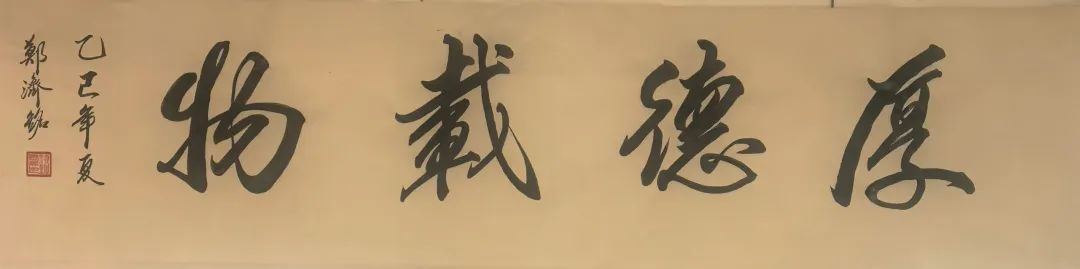 厚德載物
乙巳年夏
鄭濟銘